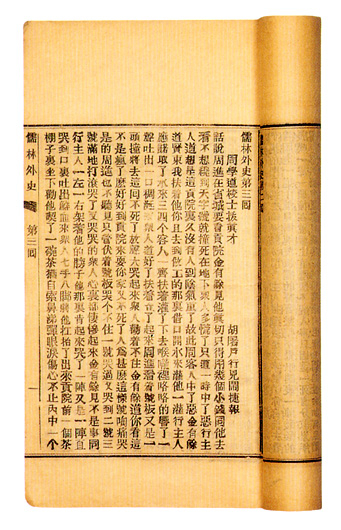 儒林外史第三回
周學道校士拔眞才　胡屠戶行兇鬧捷報
話說周進在省城要看貢院金有餘見他眞切只得用幾個小錢同他去
看不想纔到天字號就撞死在地下衆人多慌了只道一時中了惡行主
人道想是這貢院裏久沒有人到陰氣重了故此周客人中了惡金有餘
道賢東我扶着他你且去到做工的那裏借口開水來灌他一灌行主人
應諾取了水來三四個客人一齊扶着灌了下去喉嚨裏咯咯的響了一
聲吐出一口稠涎來衆人道好了扶着立了起來周進看着號板又是一
頭撞將去這回不死了放聲大哭起來衆人勸着不住金有餘道你看這
不是瘋了麼好好到貢院來耍你家又不死了人爲甚麼這樣號啕痛哭
是的周進也不聽見只管伏着號板哭個不住一號哭過又哭到二號三
號滿地打滾哭了又哭哭的衆人心裏都悽慘起來金有餘見不是事同
行主人一左一右架着他的膀子他那裏肯起來哭了一陣又是一陣直
哭到口裏吐出鮮血來衆人七手八脚將他扛抬了出來貢院前一個茶
棚子裏坐下勸他喫了一碗茶猶自索鼻涕彈眼淚傷心不止內中一個
儒林外史　第三回　一